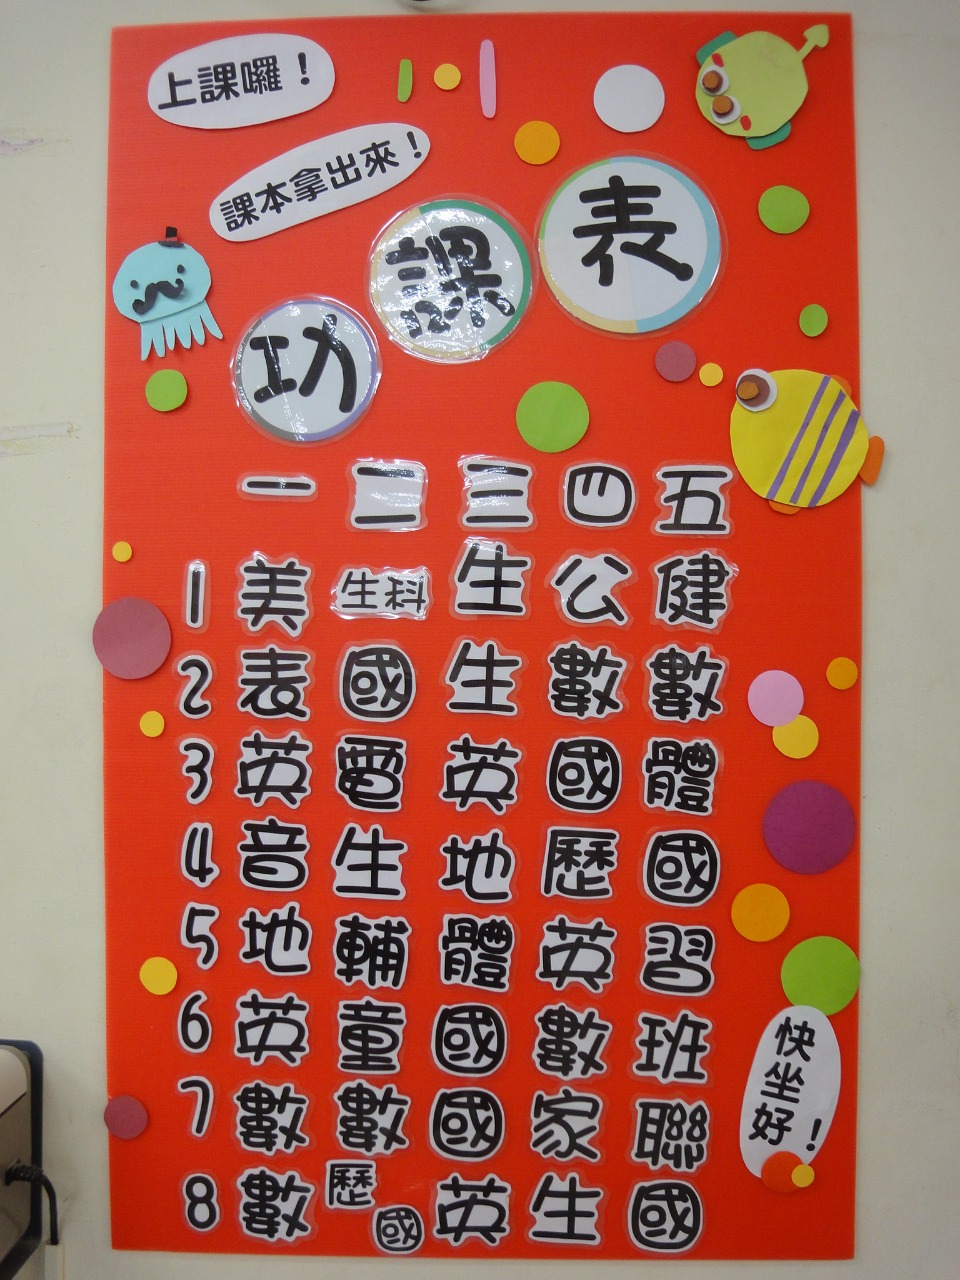 上課囉！
課本拿出來！
功課表
一 二 三 四 五
1 美 生科 生 公 健
2 表 國 生 數 數
3 英 電 英 國 體
4 音 生 地 歷 國
5 地 輔 體 英 習
6 英 童 國 數 班
7 數 數 國 家 聯
8 數 歷國 英 生 國
快坐好！